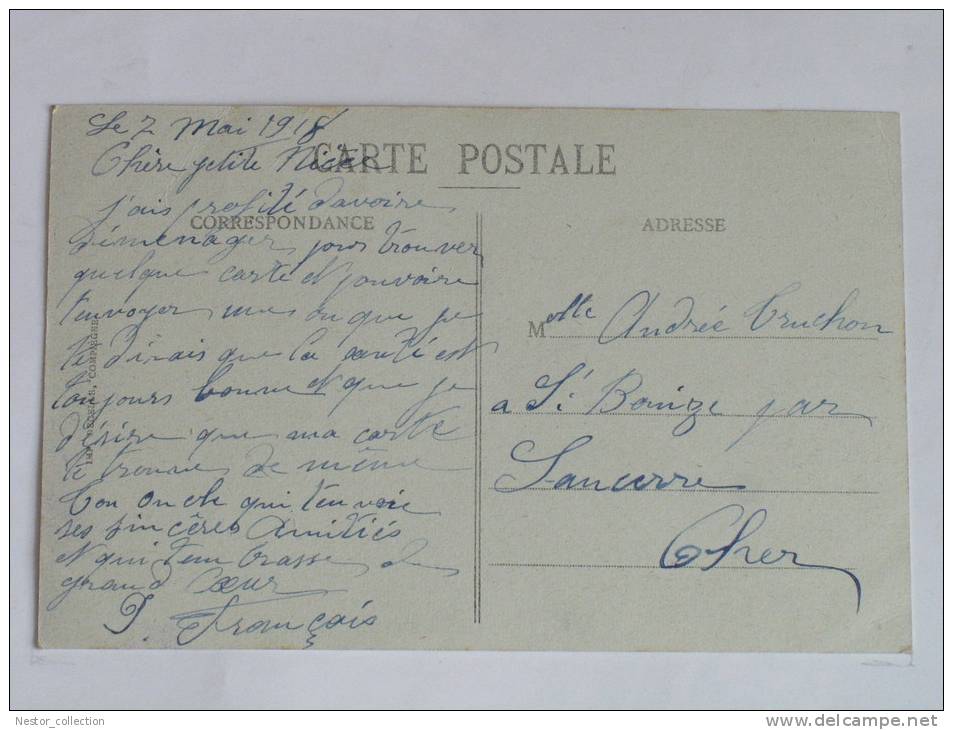 Le 7 Mai 1918
Chère petite Nièce
CARTE POSTALE
j'ais profité davoire
CORRESPONDANCE
déménager pour trouver
quelque carte et pouvoire
t'envoyer une vu que je
te dirais que la santé est
toujours bonne et que je
désire que ma carte
te trouve de même
ton oncle qui t'envoie
ses sincères Amitiés
et qui tembrasse du
grand Cœur
P. François
COMPIÈGNE
ADRESSE
Melle Andrée Truchon
a St Bouize par
Sancerre
Cher
Nestor_collection
www.delcampe.net